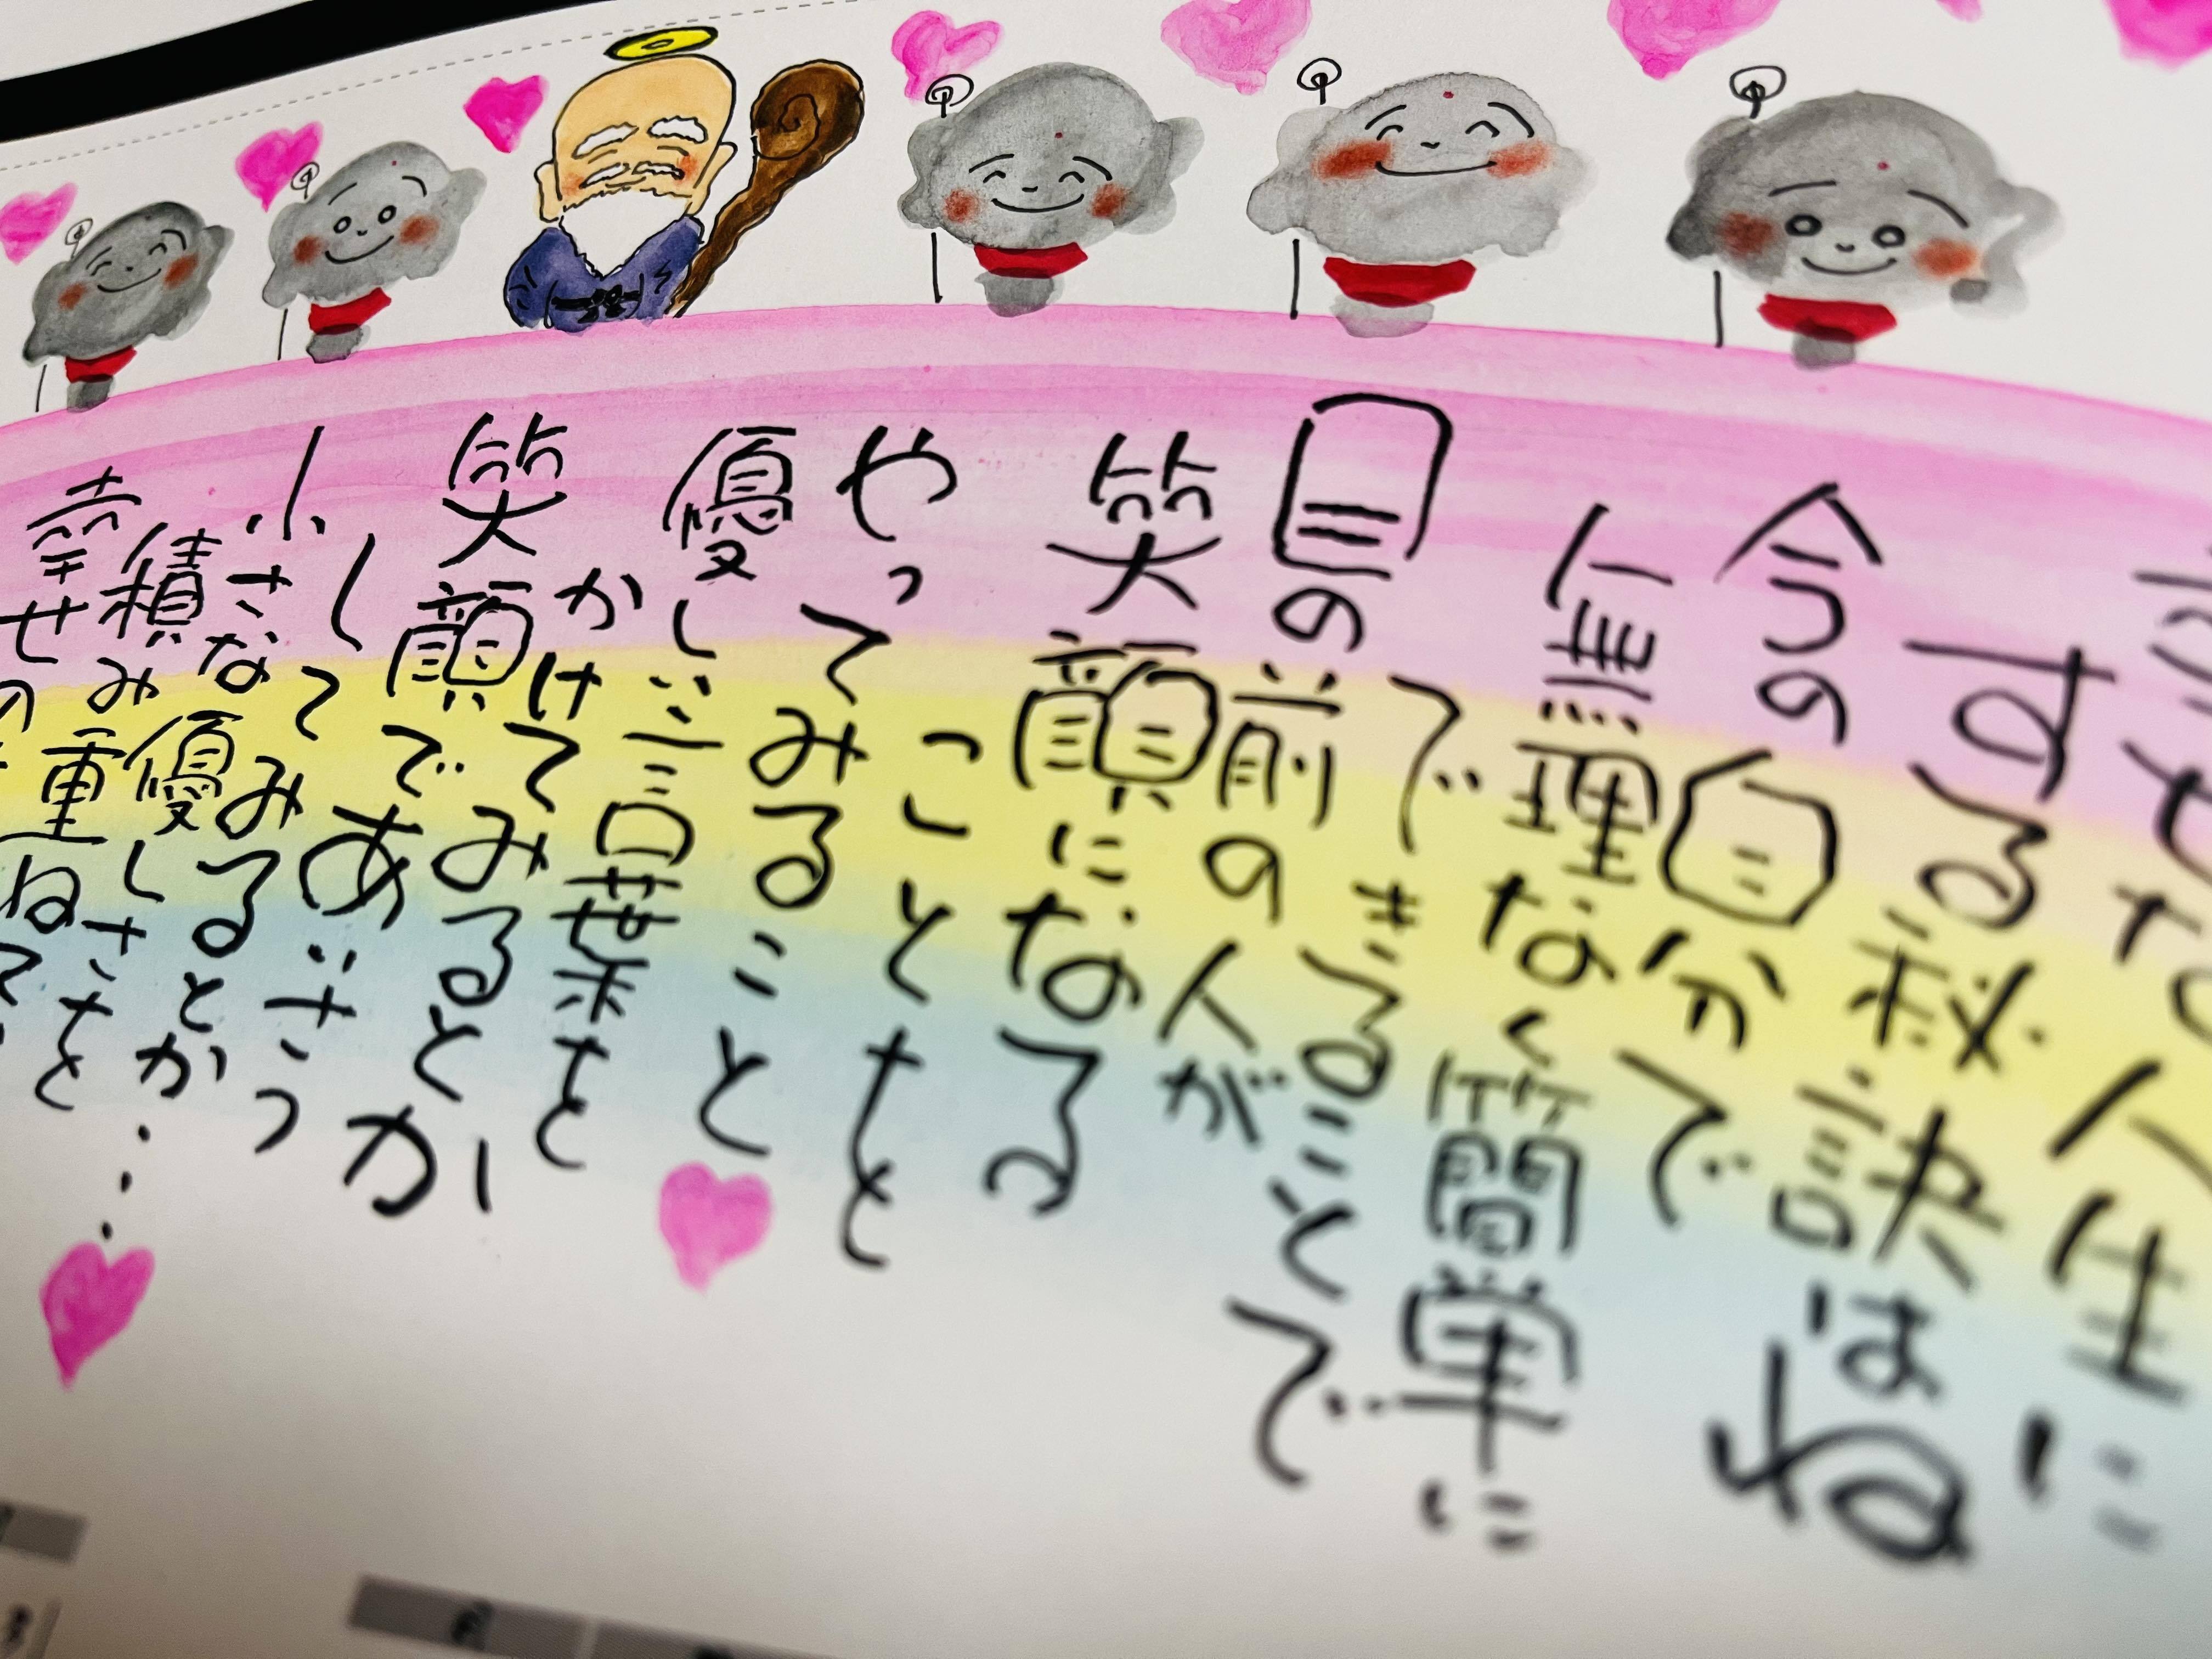 幸せな人生に
する秘訣はね
今の自分で
無理なく簡単に
できることで
目の前の人が
笑顔になる
ことを
やってみること
優しい言葉を
かけてみるとか
笑顔であいさつ
してみるとか…
小さな優しさを
積み重ねて
幸せの